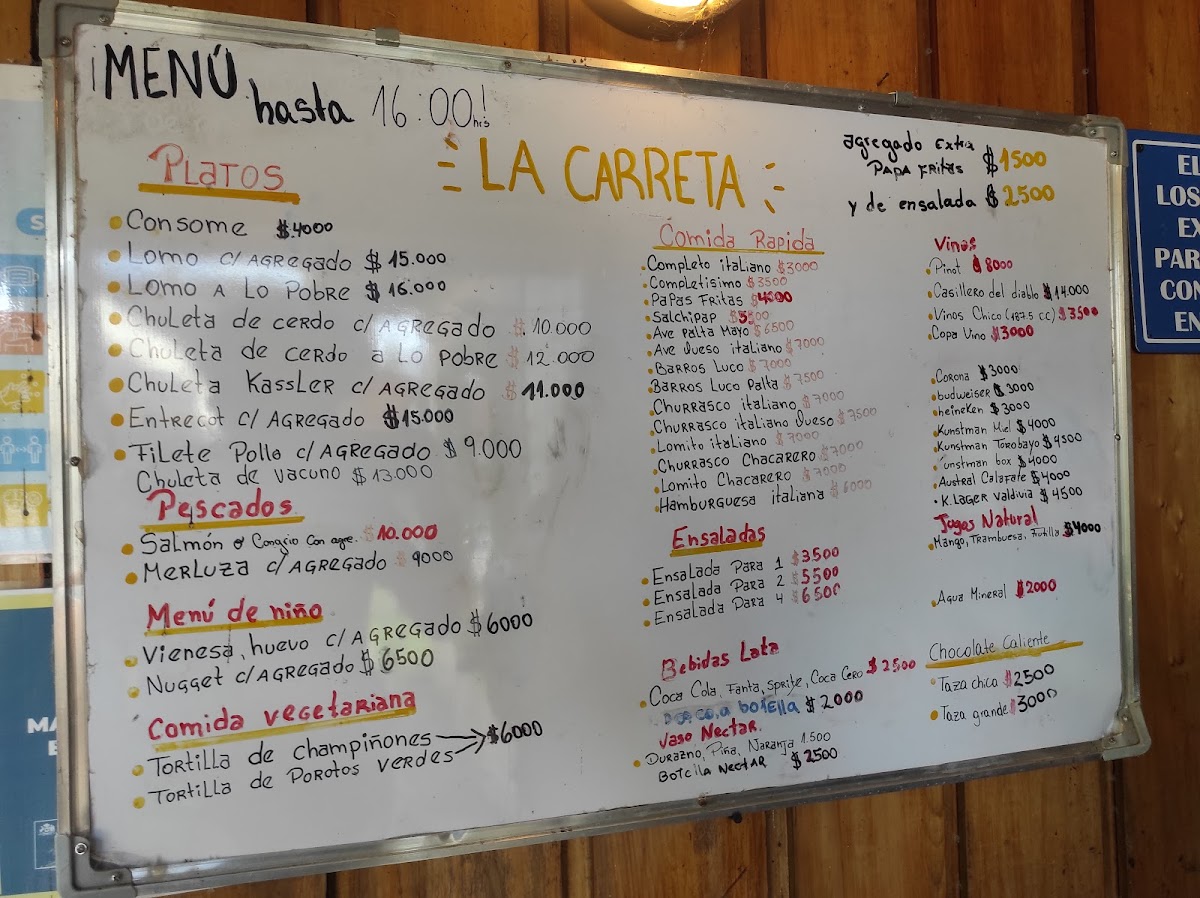 ¡MENÚ hasta 16:00hrs!
LA CARRETA
agregado extra
PAPA FRITAS $1500
y de ensalada $2500
PLATOS
Consome $4000
Lomo c/ AGREGADO $15.000
Lomo A Lo Pobre $16.000
Chuleta de cerdo c/ AGREGADO $10.000
Chuleta de cerdo a lo pobre $12.000
Chuleta Kassler c/ AGREGADO $11.000
Entrecot c/ AGREGADO $15.000
Filete Pollo c/ AGREGADO $9.000
Chuleta de vacuno $13.000
Pescados
Salmón o Congrio con agre. $10.000
Merluza c/ AGREGADO $9000
Menú de niño
Vienesa, huevo c/ AGREGADO $6000
Nugget c/ AGREGADO $6500
Comida vegetariana
Tortilla de champiñones
$6000
Tortilla de Porotos verdes
Comida Rapida
Completo italiano $3000
Completisimo $3500
Papas Fritas $4000
Salchipap $5500
Ave palta Mayo $6500
Ave Queso italiano $7000
Barros Luco $7000
Barros Luco Palta $7500
Churrasco italiano $7000
Churrasco italiano Queso $7500
Lomito italiano $7000
Churrasco Chacarero $7000
Lomito Chacarero $7000
Hamburguesa italiana $6000
Ensaladas
Ensalada Para 1 $3500
Ensalada Para 2 $5500
Ensalada Para 4 $6500
Bebidas Lata
Coca Cola, Fanta, Sprite, Coca Cero $2500
botella $2000
Vaso Nectar.
Durazno, Piña, Naranja 1.500
Botella Nectar $2500
Vinos
Pinot $8000
Casillero del diablo $14.000
Vinos Chico (187.5 cc) $3500
Copa Vino $3000
Corona $3000
budweiser $3000
heineken $3000
Kunstman Miel $4000
Kunstman Torobayo $4500
unstman box $4000
Austral Calafate $4000
K. LAGER Valdivia $4500
Jugos Natural
Mango, Frambuesa, Frutilla $4000
Agua Mineral $2000
Chocolate Caliente
Taza chica $2500
Taza grande $3000
EL
LOS
EX
PAR
CON
EN
S
MA